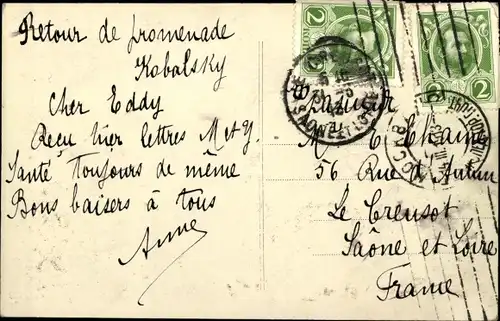 Retour de promenade
Kobalsky
Cher Eddy
Reçu hier lettres M et Y.
Santé toujours de même
Bons baisers à tous
Anne
M. E.
56 Rue d'Autun
Le Creusot
Saône et Loire
France
2
2
2